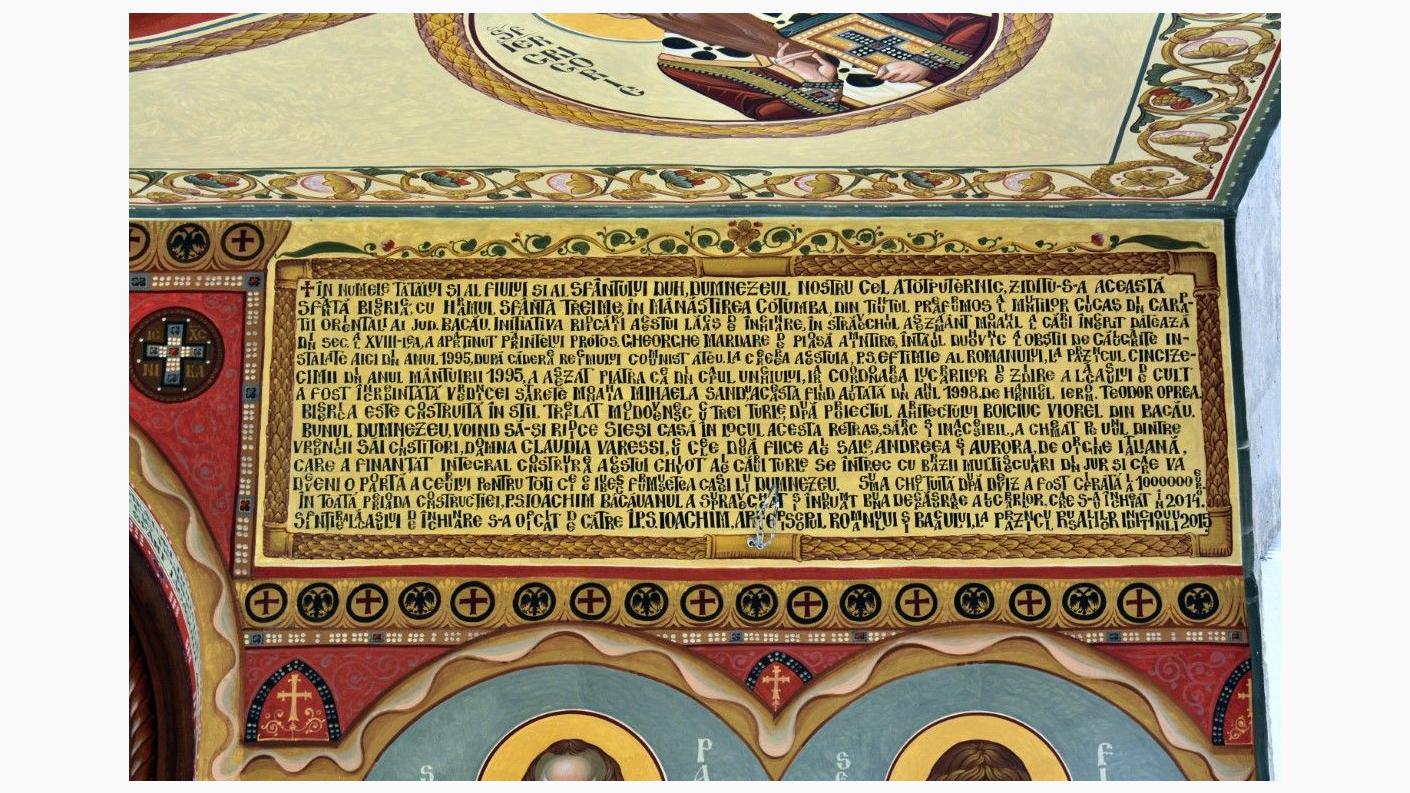 SF GHEORGHE
ÎN NUMELE TATĂLUI ȘI AL FIULUI ȘI AL SFÂNTULUI DUH, DUMNEZEUL NOSTRU CEL ATOTPUTERNIC, ZIDITU-S-A ACEASTĂ
SFÂNTĂ BISERICĂ, CU HRAMUL SFÂNTA TREIME, ÎN MĂNĂSTIREA COTUMBA, DIN ȚINUTUL PREAFRUMOS AL MUNȚILOR CIUCAȘ DIN CARPA-
ȚII ORIENTALI AI JUD. BACĂU. INIȚIATIVA RIDICĂRII ACESTUI LĂCAȘ DE ÎNCHINARE, ÎN STRĂVECHIUL AȘEZĂMÂNT MONAHAL A CĂRUI ÎNCEPUT DATEAZĂ
DIN SEC. A XVIII-LEA, A APARȚINUT PĂRINTELUI PROTOS. GHEORGHE MARDARE DE PIOASĂ AMINTIRE, ÎNTÂIUL DUHOVNIC A OBȘTII DE CĂLUGĂRIȚE IN-
STALATE AICI DIN ANUL 1995, DUPĂ CĂDEREA REGIMULUI COMUNIST ATEU. LA CEREREA ACESTUIA, P.S. EFTIMIE AL ROMANULUI, LA PRAZNICUL CINCIZE-
CIMII DIN ANUL MÂNTUIRII 1995, A AȘEZAT PIATRA CEA DIN CAPUL UNGHIULUI, IAR COORDONAREA LUCRĂRILOR DE ZIDIRE A LĂCAȘULUI DE CULT
A FOST ÎNCREDINȚATĂ VREDNICEI STAREȚE MONAHIA MIHAELA SANDU, ACEASTA FIIND AJUTATĂ DIN ANUL 1998. DE HARNICUL IERM. TEODOR OPREA.
BISERICA ESTE CONSTRUITĂ ÎN STIL TREFLAT MOLDOVENESC CU TREI TURLE, DUPĂ PROIECTUL ARHITECTULUI BOICIUC VIOREL DIN BACĂU.
BUNUL DUMNEZEU, VOIND SĂ-ȘI RIDICE SIEȘI CASĂ ÎN LOCUL ACESTA RETRAS, SĂRAC ȘI INACCESIBIL, A CHEMAT PE UNUL DINTRE
VREDNICII SĂI CTITORI, DOAMNA CLAUDIA VARESSI, CU CELE DOUĂ FIICE ALE SALE, ANDREEA ȘI AURORA, DE ORIGINE ITALIANĂ,
CARE A FINANȚAT INTEGRAL CONSTRUIREA ACESTUI CHIVOT ALE CĂRUI TURLE SE ÎNTREC CU BRAZII MULTISECULARI DIN JUR ȘI CARE VA
DEVENI O POARTĂ A CERULUI PENTRU TOȚI CEI CE IUBESC FRUMUSEȚEA CASEI LUI DUMNEZEU. SUMA CHELTUITĂ DUPĂ DEVIZ A FOST CIFRATĂ LA 1000000 EURO
ÎN TOATĂ PERIOADA CONSTRUCȚIEI, P.S. IOACHIM BĂCĂUANUL A SUPRAVEGHEAT ȘI ÎNDRUMAT BUNA DESFĂȘURARE A LUCRĂRILOR, CARE S-A ÎNCHEIAT ÎN 2014.
SFINȚIREA LĂCAȘULUI DE ÎNCHINARE S-A OFICIAT DE CĂTRE Î.P.S. IOACHIM, ARHIEPISCOPUL ROMANULUI ȘI BACĂULUI, LA PRAZNICUL 2015
IC XC
NI KA